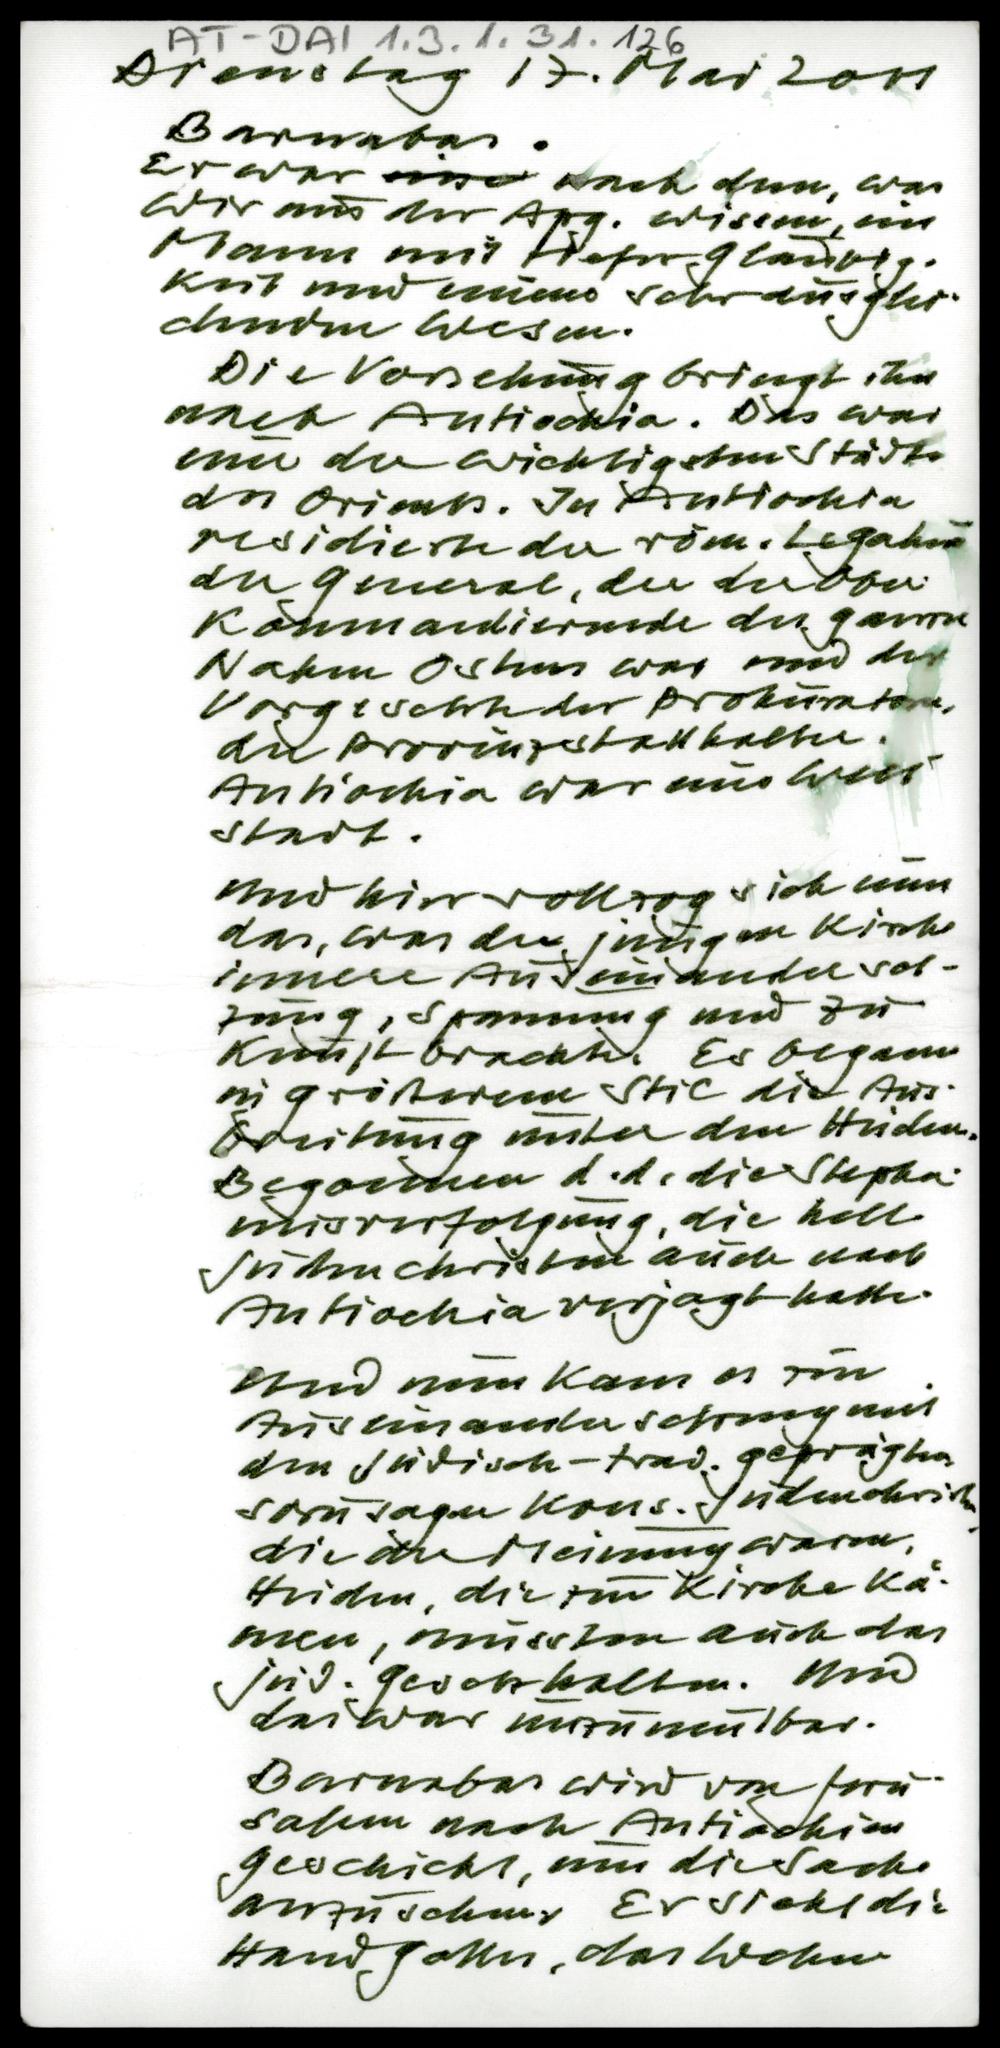 AT-DAI 1.3.1.31.126
Dienstag 17. Mai 2011
Barnabas.
Er war nach dem, was
wir aus der Apg. wissen, ein
Mann mit tiefer Gläubig-
keit und eines sehr ausglei-
chenden Wesen.
Die Vorsehung bringt ihn
nach Antiochia. Das war
eine der wichtigsten Städte
des Orients. In Antiochia
residierte der röm. Legatus
der General, der der Ober-
kommandierende des ganzen
Nahen Ostens war und der
Vorgesetzte der Prokuratoren,
der Provinzstatthalter.
Antiochia war eine Welt
stadt.
Und hier vollzog sich nun
das, was der jungen Kirche
innere Auseinanderset-
zung, Spannung und Zu
kunft brachte. Es begann
in größerem Stil die Aus-
breitung unter den Heiden.
Begonnen d. d. die Stepha-
nusverfolgung, die hell.
Judenchristen auch nach
Antiochia verjagt hatte.
Und nun kam es zur
Auseinandersetzung mit
den jüdisch-trad. geprägten
sozusagen kons. Judenchristen,
die der Meinung waren,
Heiden, die zur Kirche kä-
men, müssten auch das
jüd. Gesetz halten. Und
das war unzumutbar.
Barnabas wird von Jeru-
salem nach Antiochien
geschickt, um die Sache
anzusehen. Er sieht die
Hand Gottes, das Wehen